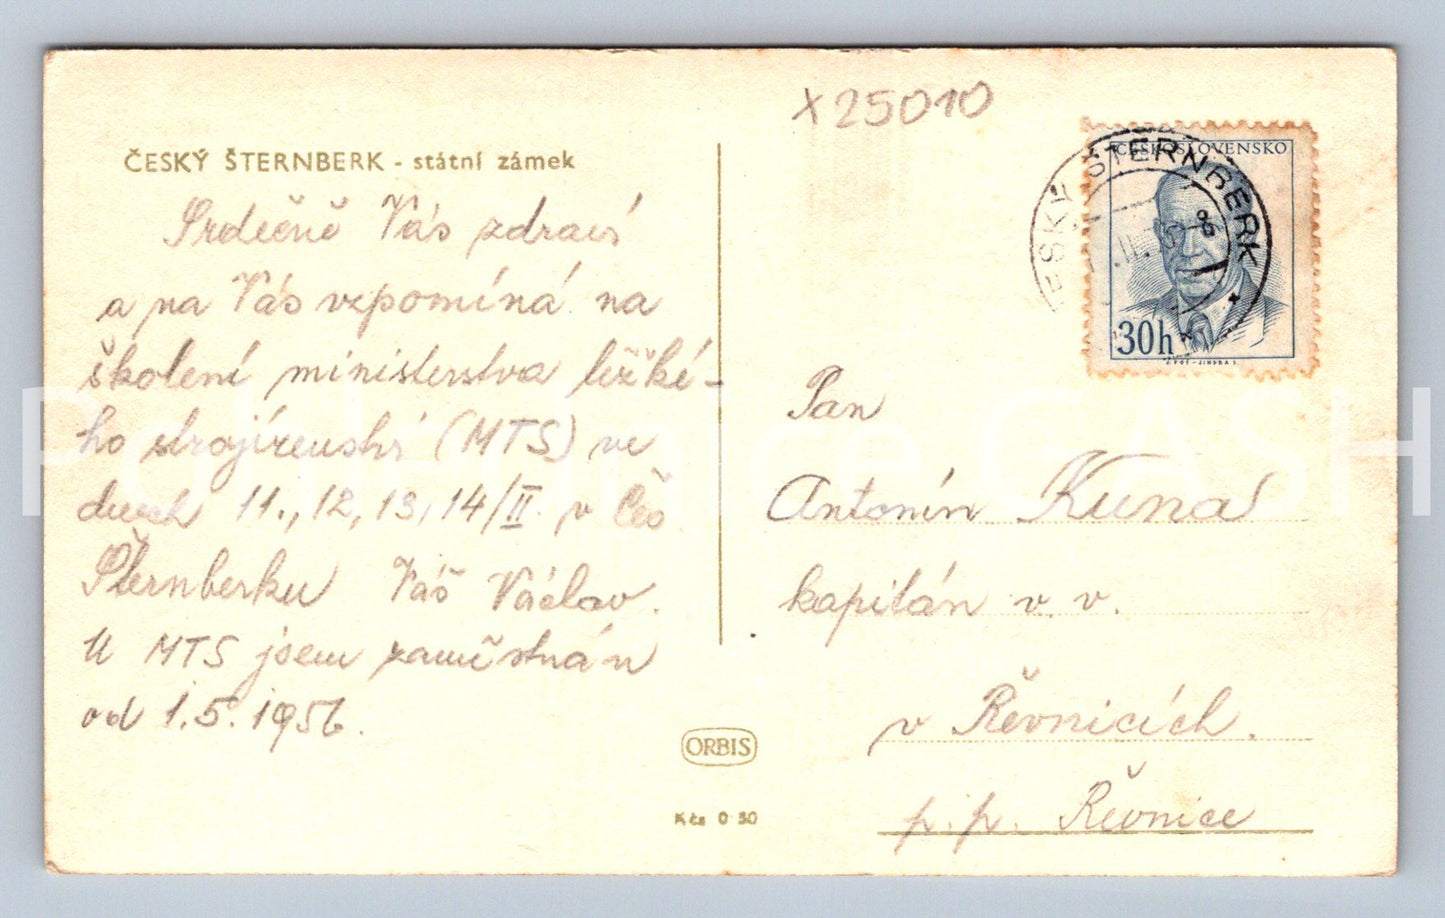 x25010
ČESKÝ ŠTERNBERK - státní zámek
Srdečně Vás zdraví
a na Vás vzpomíná na
školení ministerstva těžké-
ho strojírenství (MTS) ve
dnech 11., 12, 13, 14/II v Čes
Šternberku Váš Václav.
U MTS jsem zaměstnán
od 1.5.1956.
ČESKOSLOVENSKO
30h
ESKÝ ŠTERNBERK
Pan
Antonín Kuna
kapitán v. v.
v Řevnicích.
p. p. Řevnice
ORBIS
Kčs 0·30